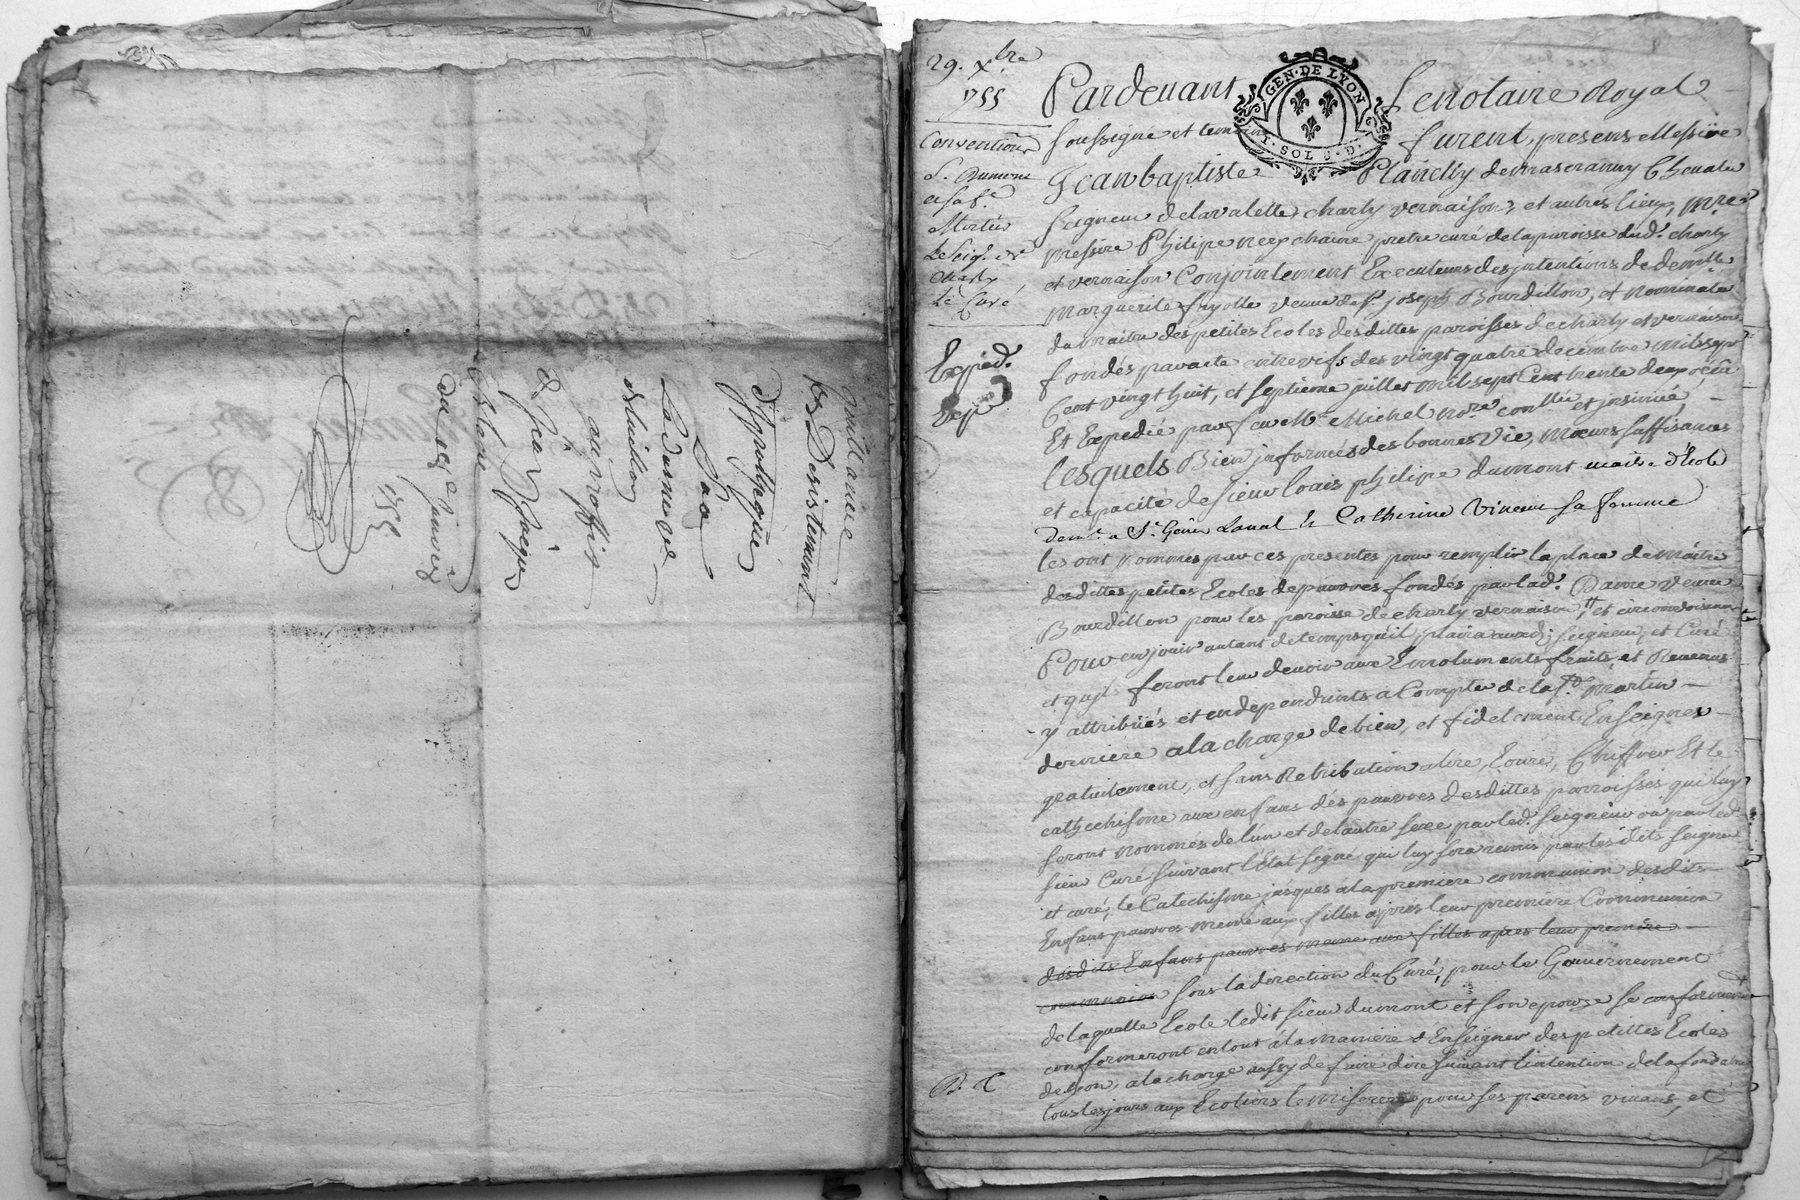 millanie
Desistement
d'hypoteque
Par
La demoise
au proffit
de
Sieur
du 1er janvier
1755
29. Xbre
1755
Convention
Sr. Dumont
et sa fe.
Le Seigr. de
Charly
le Curé
Expéd.
GEN. DE LYON
SOL
Pardevant Le notaire Royal
soussigné et temoins furent presens Messire
Jean baptiste Planelly demascranny Chevalier
Seigneur delavalette, charly vernaison, et autres lieux, Mre
messire Philipe nery chaine pretre curé delaparoisse dud. charly
et vernaison Conjointement Executeurs des jntentions de demlle
marguerite fayolle veuve de Sr. joseph Bourdillon, et nominateurs
du maitre des petites Ecoles desdittes paroisses de charly et vernaison
fondés par acte entrevifs des vingt quatre decembre mil sept
Cent vingt huit, et septieme juillet mil sept Cent trente deux reçu
Et Expedié par feu Me. Michel nore. et jnsinué,
lesquels Bien jnformés des bonnes Vie, Mœurs suffisances
et capacité de sieur louis philipe dumont maitre d'école
demt. a St. Genis Laval & Catherine Vincent sa femme
les ont nommes par ces presentes pour remplir la place de maitre
desdittes petites Ecoles de pauvres fondés par lad. Dame veuve
Bourdillon pour les paroisse de charly vernaison, et circonvoisines
Pour en jouir autant de temps qu'il plaira auxd. seigneur, et Curé
et qu'jls feront leur devoir aux Emoluments fruits, et Revenus
y attribüés et en dependants a Compter de la St. martin
derniere a la charge de bien, et fidelement, Enseigner
gratuitement, et sans Retribution a lire, Ecrire, Chiffrer Et le
cathechisme aux enfans des pauvres desdittes parroisses qui luy
seront nommés de l'un et de l'autre sexe par led. Seigneur ou par led.
sieur Curé suivant l'état signé qui luy sera remis par lesdits seigneur
et curé, le Catechisme jusques a la premiere communion desdits
Enfans pauvres meme aux filles après leur premiere Communion
desdits Enfans pauvres meme aux filles apres leur premiere
communion sous la direction du Curé, pour le Gouvernement
de laquelle Ecole ledit sieur dumont et son epouse se conformeront
conformeront en tout a la maniere d'Enseigner des petittes Ecoles
de Lyon, a la charge aussy de faire dire suivant l'intention de la fondatrice
tous les jours aux Ecoliers le miserere pour ses parens vivans, et